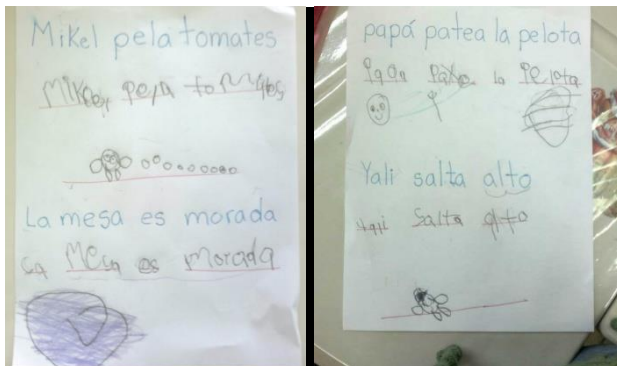 Mikel pela tomates
Mikel pela tomates
La mesa es morada
La mesa es morada
papá patea la pelota
Papa la Pelota
Yali salta alto
Yali Salta alto